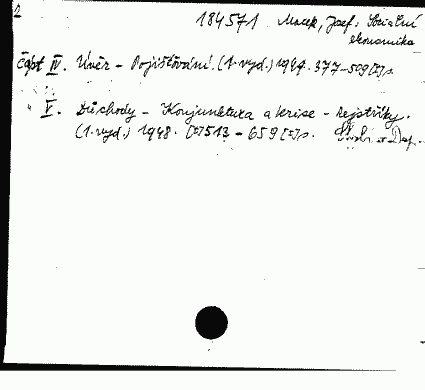 2
184571 Macek, Josef: Sociální
ekonomika
část IV. Úvěr - Pojišťování. (1. vyd.) 1947. 377-509 [I] s.
" V. Důchody - Konjunktura a krise - Rejstříky.
(1. vyd.) 1948. [I] 513 - 659 [I] s.